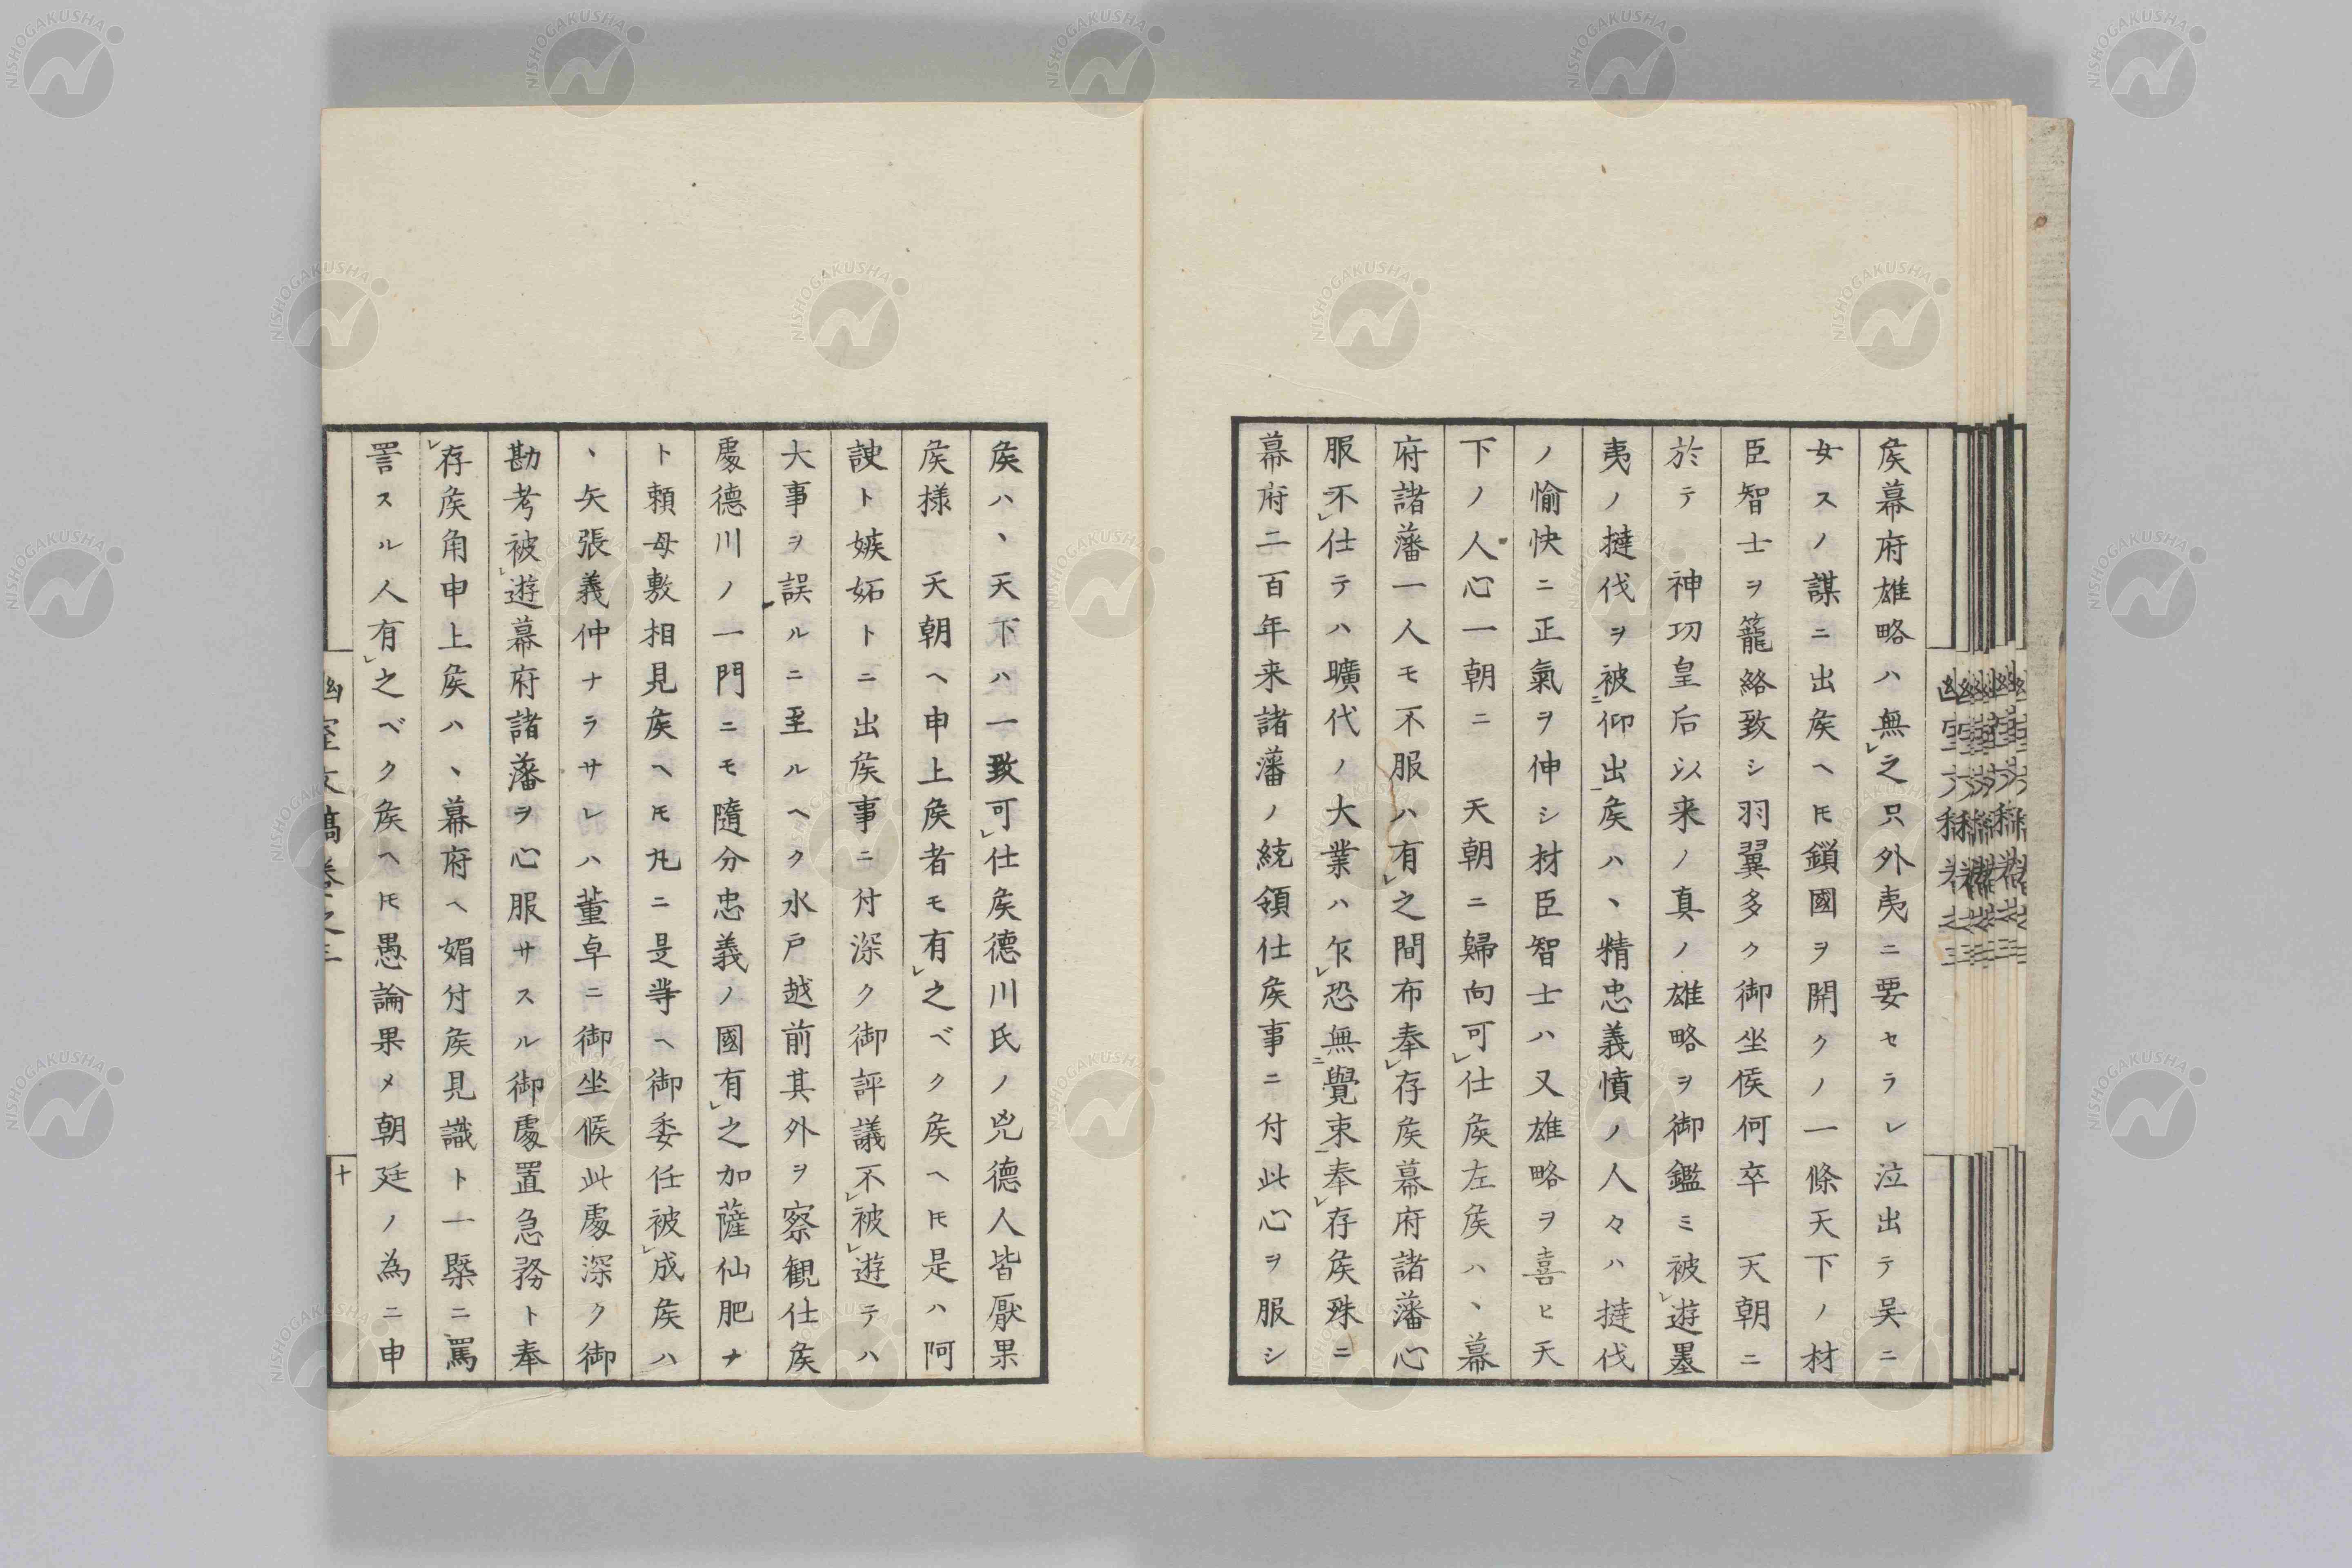 矦幕府雄略ハ無㆑之只外夷ニ要セラレ泣出テ吴ニ
女スノ謀ニ出矦ヘ𪜈鎖國ヲ開クノ一條天下ノ材
臣智士ヲ籠絡致シ羽翼多ク御坐候何卒　天朝ニ
於テ　神功皇后以来ノ真ノ雄略ヲ御鑑ミ被㆑遊墨
夷ノ撻伐ヲ被㆓仰出㆒矦ハヽ精忠義憤ノ人々ハ撻伐
ノ愉快ニ正氣ヲ伸シ材臣智士ハ又雄略ヲ喜ヒ天
下ノ人心一朝ニ　天朝ニ歸向可㆑仕矦左矦ハヽ幕
府諸藩一人モ不服ハ有㆑之間布奉㆑存矦幕府諸藩心
服不㆑仕テハ曠代ノ大業ハ乍㆑恐無㆓覺束㆒奉㆑存矦殊ニ
幕府二百年来諸藩ノ統領仕矦事ニ付此心ヲ服シ
矦ハヽ天下ハ一致可㆑仕矦德川氏ノ兇德人皆厭果
矦様　天朝ヘ申上矦者モ有㆑之ベク矦ヘ𪜈是ハ阿
諛ト嫉妬トニ出矦事ニ付深ク御評議不㆑被㆑遊テハ
大事ヲ誤ルニ至ルヘク水戸越前其外ヲ察観仕矦
處德川ノ一門ニモ隨分忠義ノ國有㆑之加薩仙肥ナ
ト頼母敷相見矦ヘ𪜈凡ニ是等ヘ御委任被㆑成矦ハ
ヽ矢張義仲ナラサレハ董卓ニ御坐候此處深ク御
勘考被㆑遊幕府諸藩ヲ心服サスル御處置急務ト奉
㆑存矦角申上矦ハヽ幕府ヘ媚付矦見識ト一槩ニ罵
詈スル人有㆑之ベク矦ヘ𪜈愚論果メ朝廷ノ為ニ申
幽室文稿卷之三
十